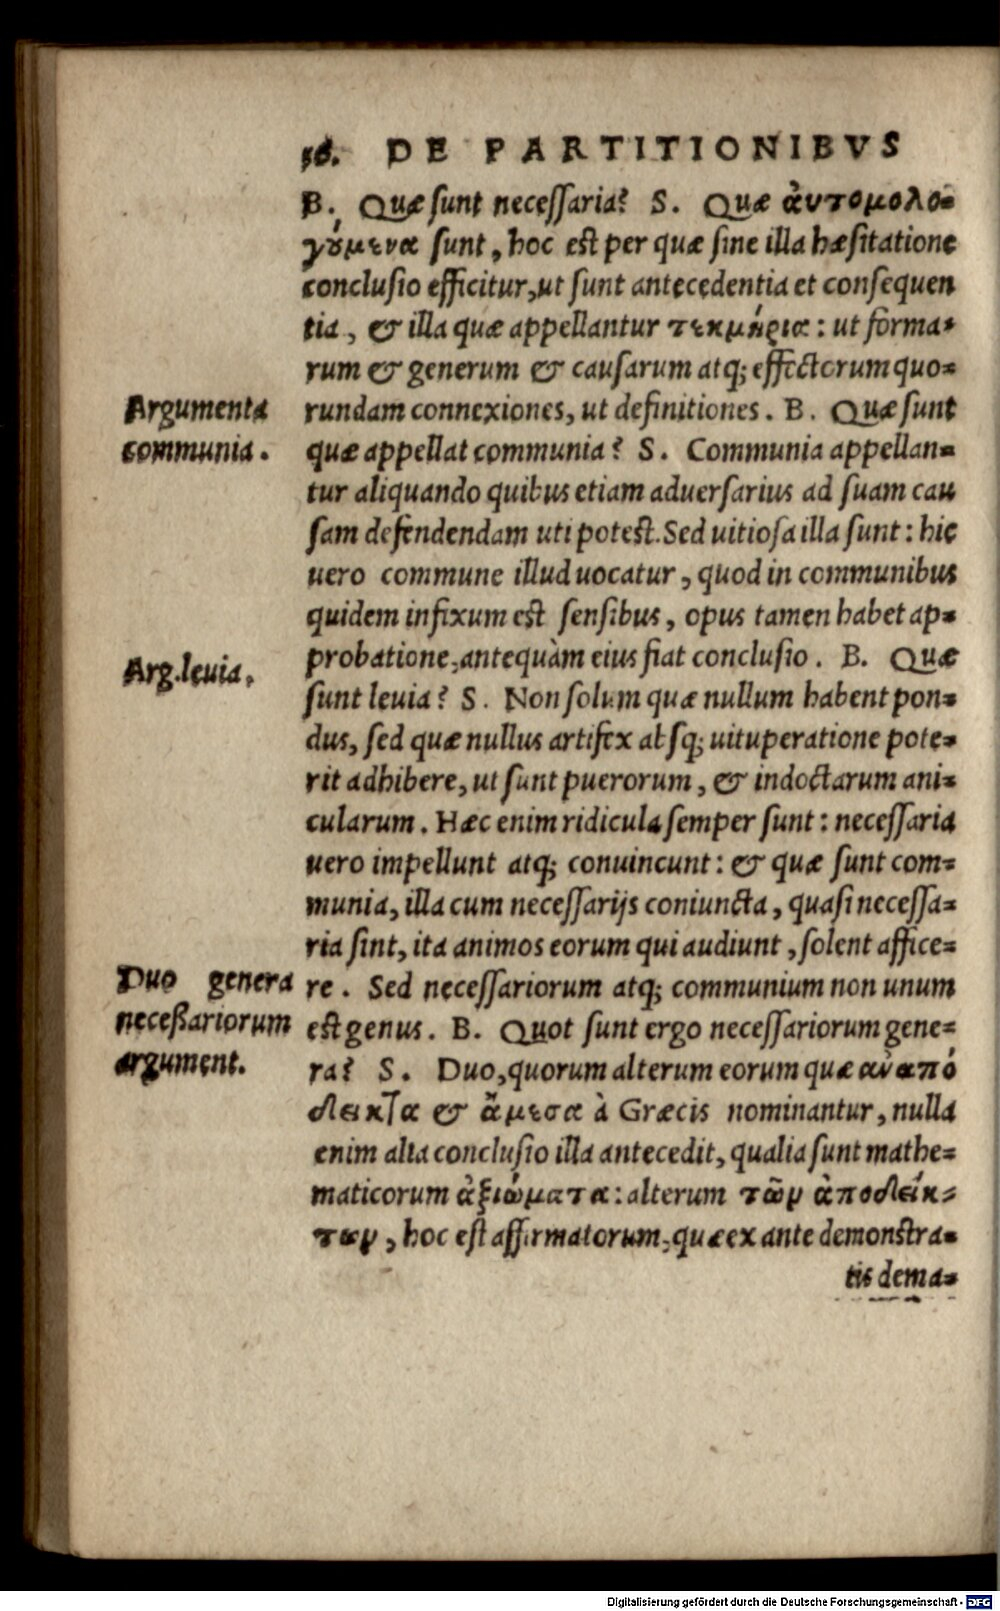 56. DE PARTITIONIBVS
B. Quæ sunt necessaria? S. Quæ ἀυτομολο-
γούμενα sunt, hoc est per quæ sine illa hæsitatione
conclusio efficitur, ut sunt antecedentia et consequen
tia, & illa quæ appellantur τεκμήρια: ut forma-
rum & generum & causarum atq; effectorum quo-
Argumenta
communia.
rundam connexiones, ut definitiones. B. Quæ sunt
quæ appellat communia? S. Communia appellan-
tur aliquando quibus etiam aduersarius ad suam cau
sam defendendam uti potest. Sed uitiosa illa sunt: hic
uero commune illud uocatur, quod in communibus
quidem infixum est sensibus, opus tamen habet ap-
Arg. leuia.
probatione, antequàm eius fiat conclusio. B. Quæ
sunt leuia? S. Non solum quæ nullum habent pon-
dus, sed quæ nullus artifex absq; uituperatione pote-
rit adhibere, ut sunt puerorum, & indoctarum ani-
cularum. Hæc enim ridicula semper sunt: necessaria
uero impellunt atq; conuincunt: & quæ sunt com-
munia, illa cum necessarijs coniuncta, quasi necessa-
ria sint, ita animos eorum qui audiunt, solent affice-
Duo genera
neceßariorum
argument.
re. Sed necessariorum atq; communium non unum
est genus. B. Quot sunt ergo necessariorum gene-
ra? S. Duo, quorum alterum eorum quæ ἀναπό
δεικτα & ἄμεσα à Græcis nominantur, nulla
enim alia conclusio illa antecedit, qualia sunt mathe-
maticorum ἀξιώματα: alterum τῶν ἀποδείκ-
των, hoc est affirmatorum, quæ ex ante demonstra-
tis dema-
Digitalisierung gefördert durch die Deutsche Forschungsgemeinschaft - DFG